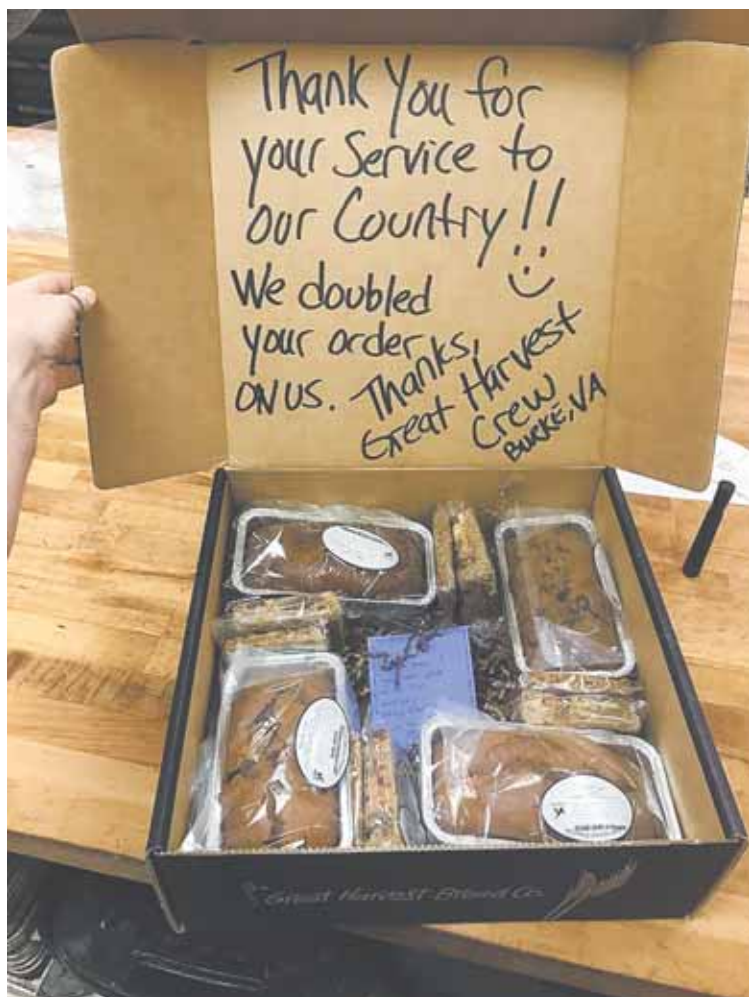 Thank You for
your Service to
our Country!!
We doubled
your order
ON US. Thanks,
Great Harvest
Crew
BURKE, VA
Great Harvest Bread Co.